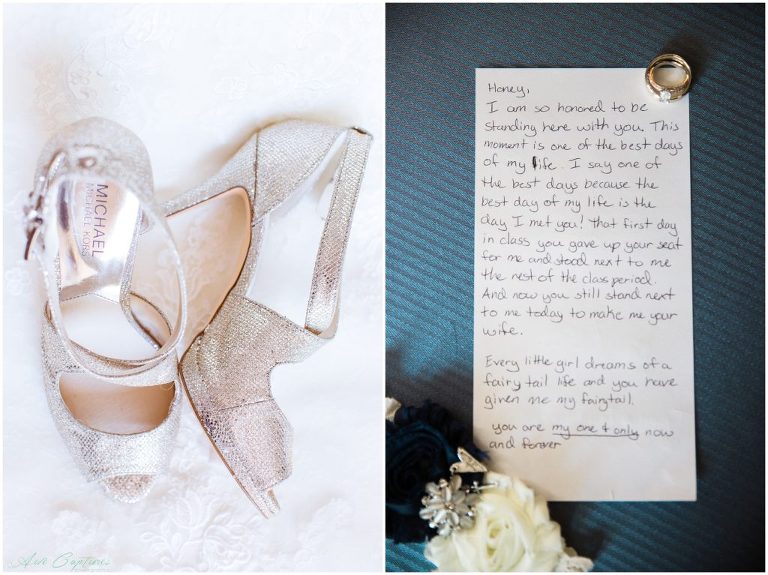 MICHAEL
MICHAEL KORS
Honey,
I am so honored to be
standing here with you. This
moment is one of the best days
of my life. I say one of
the best days because the
best day of my life is the
day I met you! That first day
in class you gave up your seat
for me and stood next to me
the rest of the class period.
And now you still stand next
to me today to make me your
wife.
Every little girl dreams of a
fairy tail life and you have
given me my fairytail.
you are my one & only now
and forever